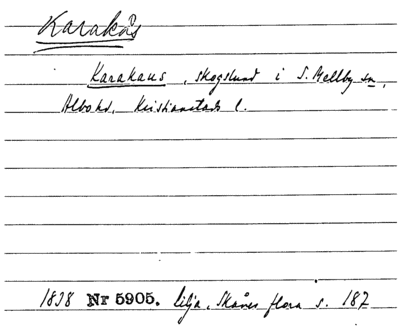 Karakås
Karakaus, skogslund i S. Mellby sn,
Albo hd, Kristianstads l.
1838 Nr 5905. Lilja, Skånes flora s. 187